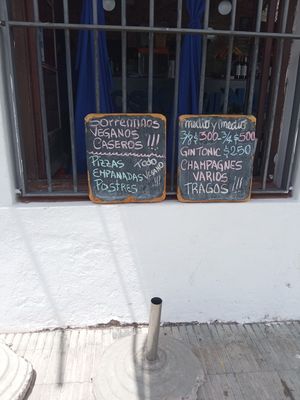 Sorrentinos
VEGANOS
CASEROS !!!
PIZZAS
EMPANADAS
POSTRES
TODO
VEGANO
medio y medio
3/8 $ 300 - 3/4 $ 500
GIN TONIC $250
CHAMPAGNES
VARIOS
TRAGOS !!!